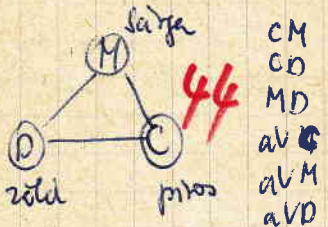 sárga
M
44
D
C
zöld
piros
CM
CD
MD
aVC
aVM
aVD